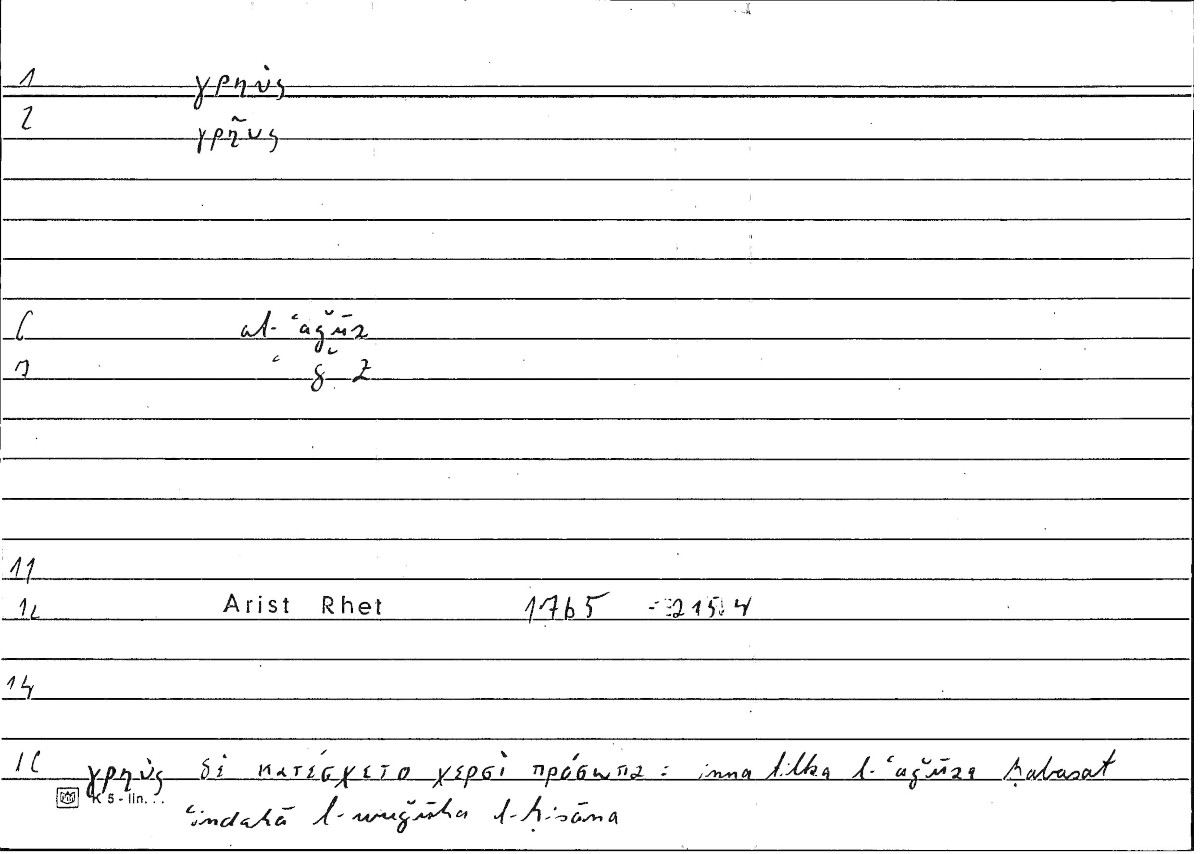 1 γρηὺς
2 γρῆυς
6 al-ʿaǧūz
7 ʿ ǧ z
11
12 Arist Rhet 17b5 - 215,4
14
16 γρηὺς δὲ κατέσχετο χερσὶ πρόσωπα : inna tilka l-ʿaǧūza ḥabasat
K 5 - lin. . .
ʿindahā l-wuǧūha l-ḥisāna